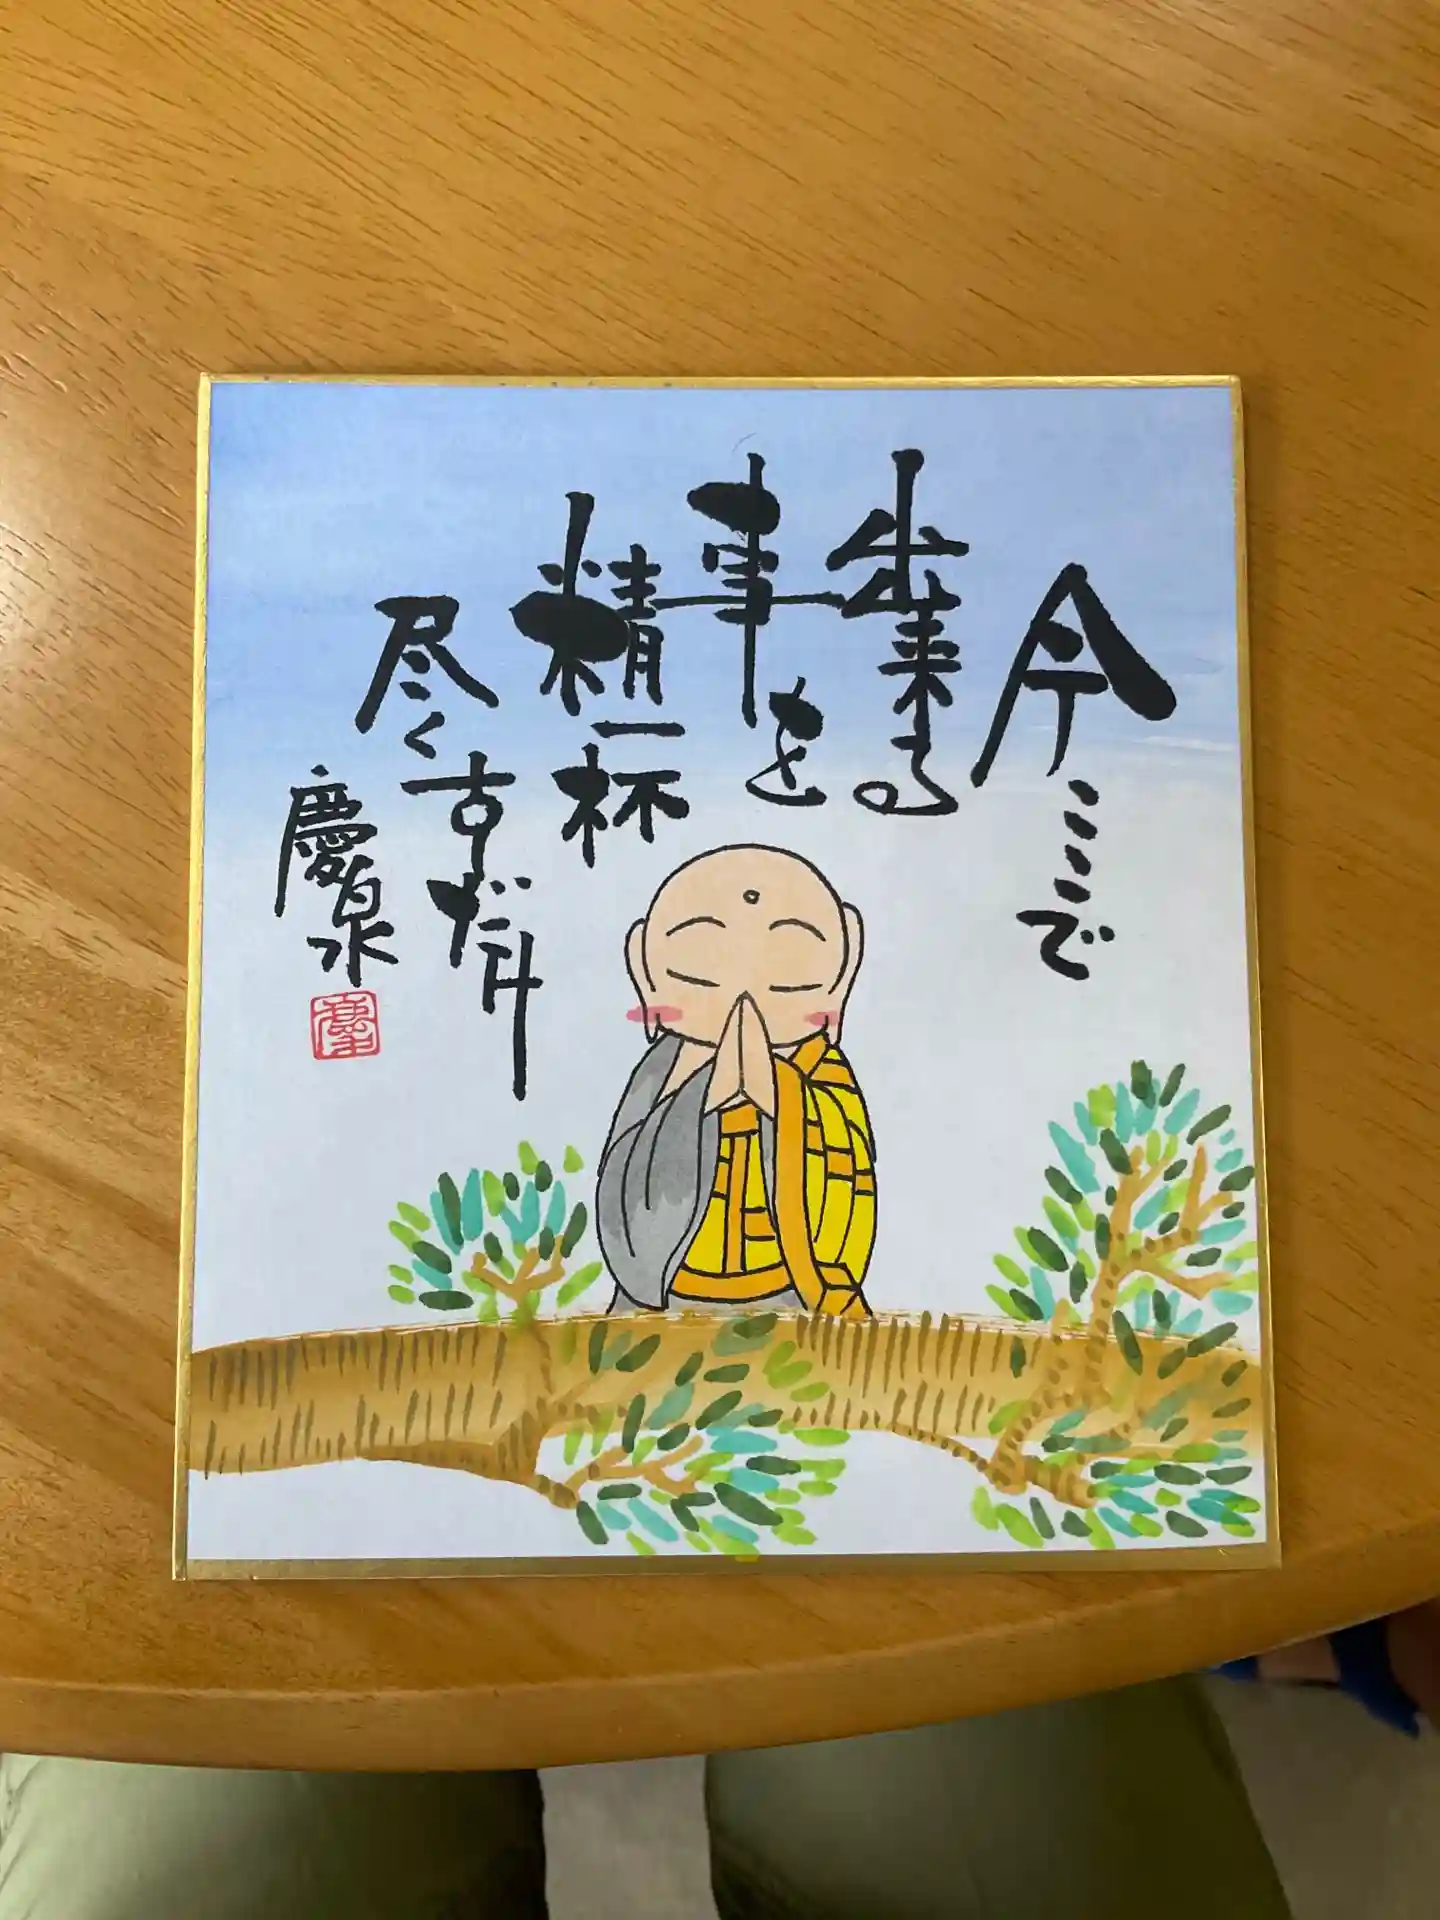 今ここで
出来る
事を
精一杯
尽くすだけ
慶泉